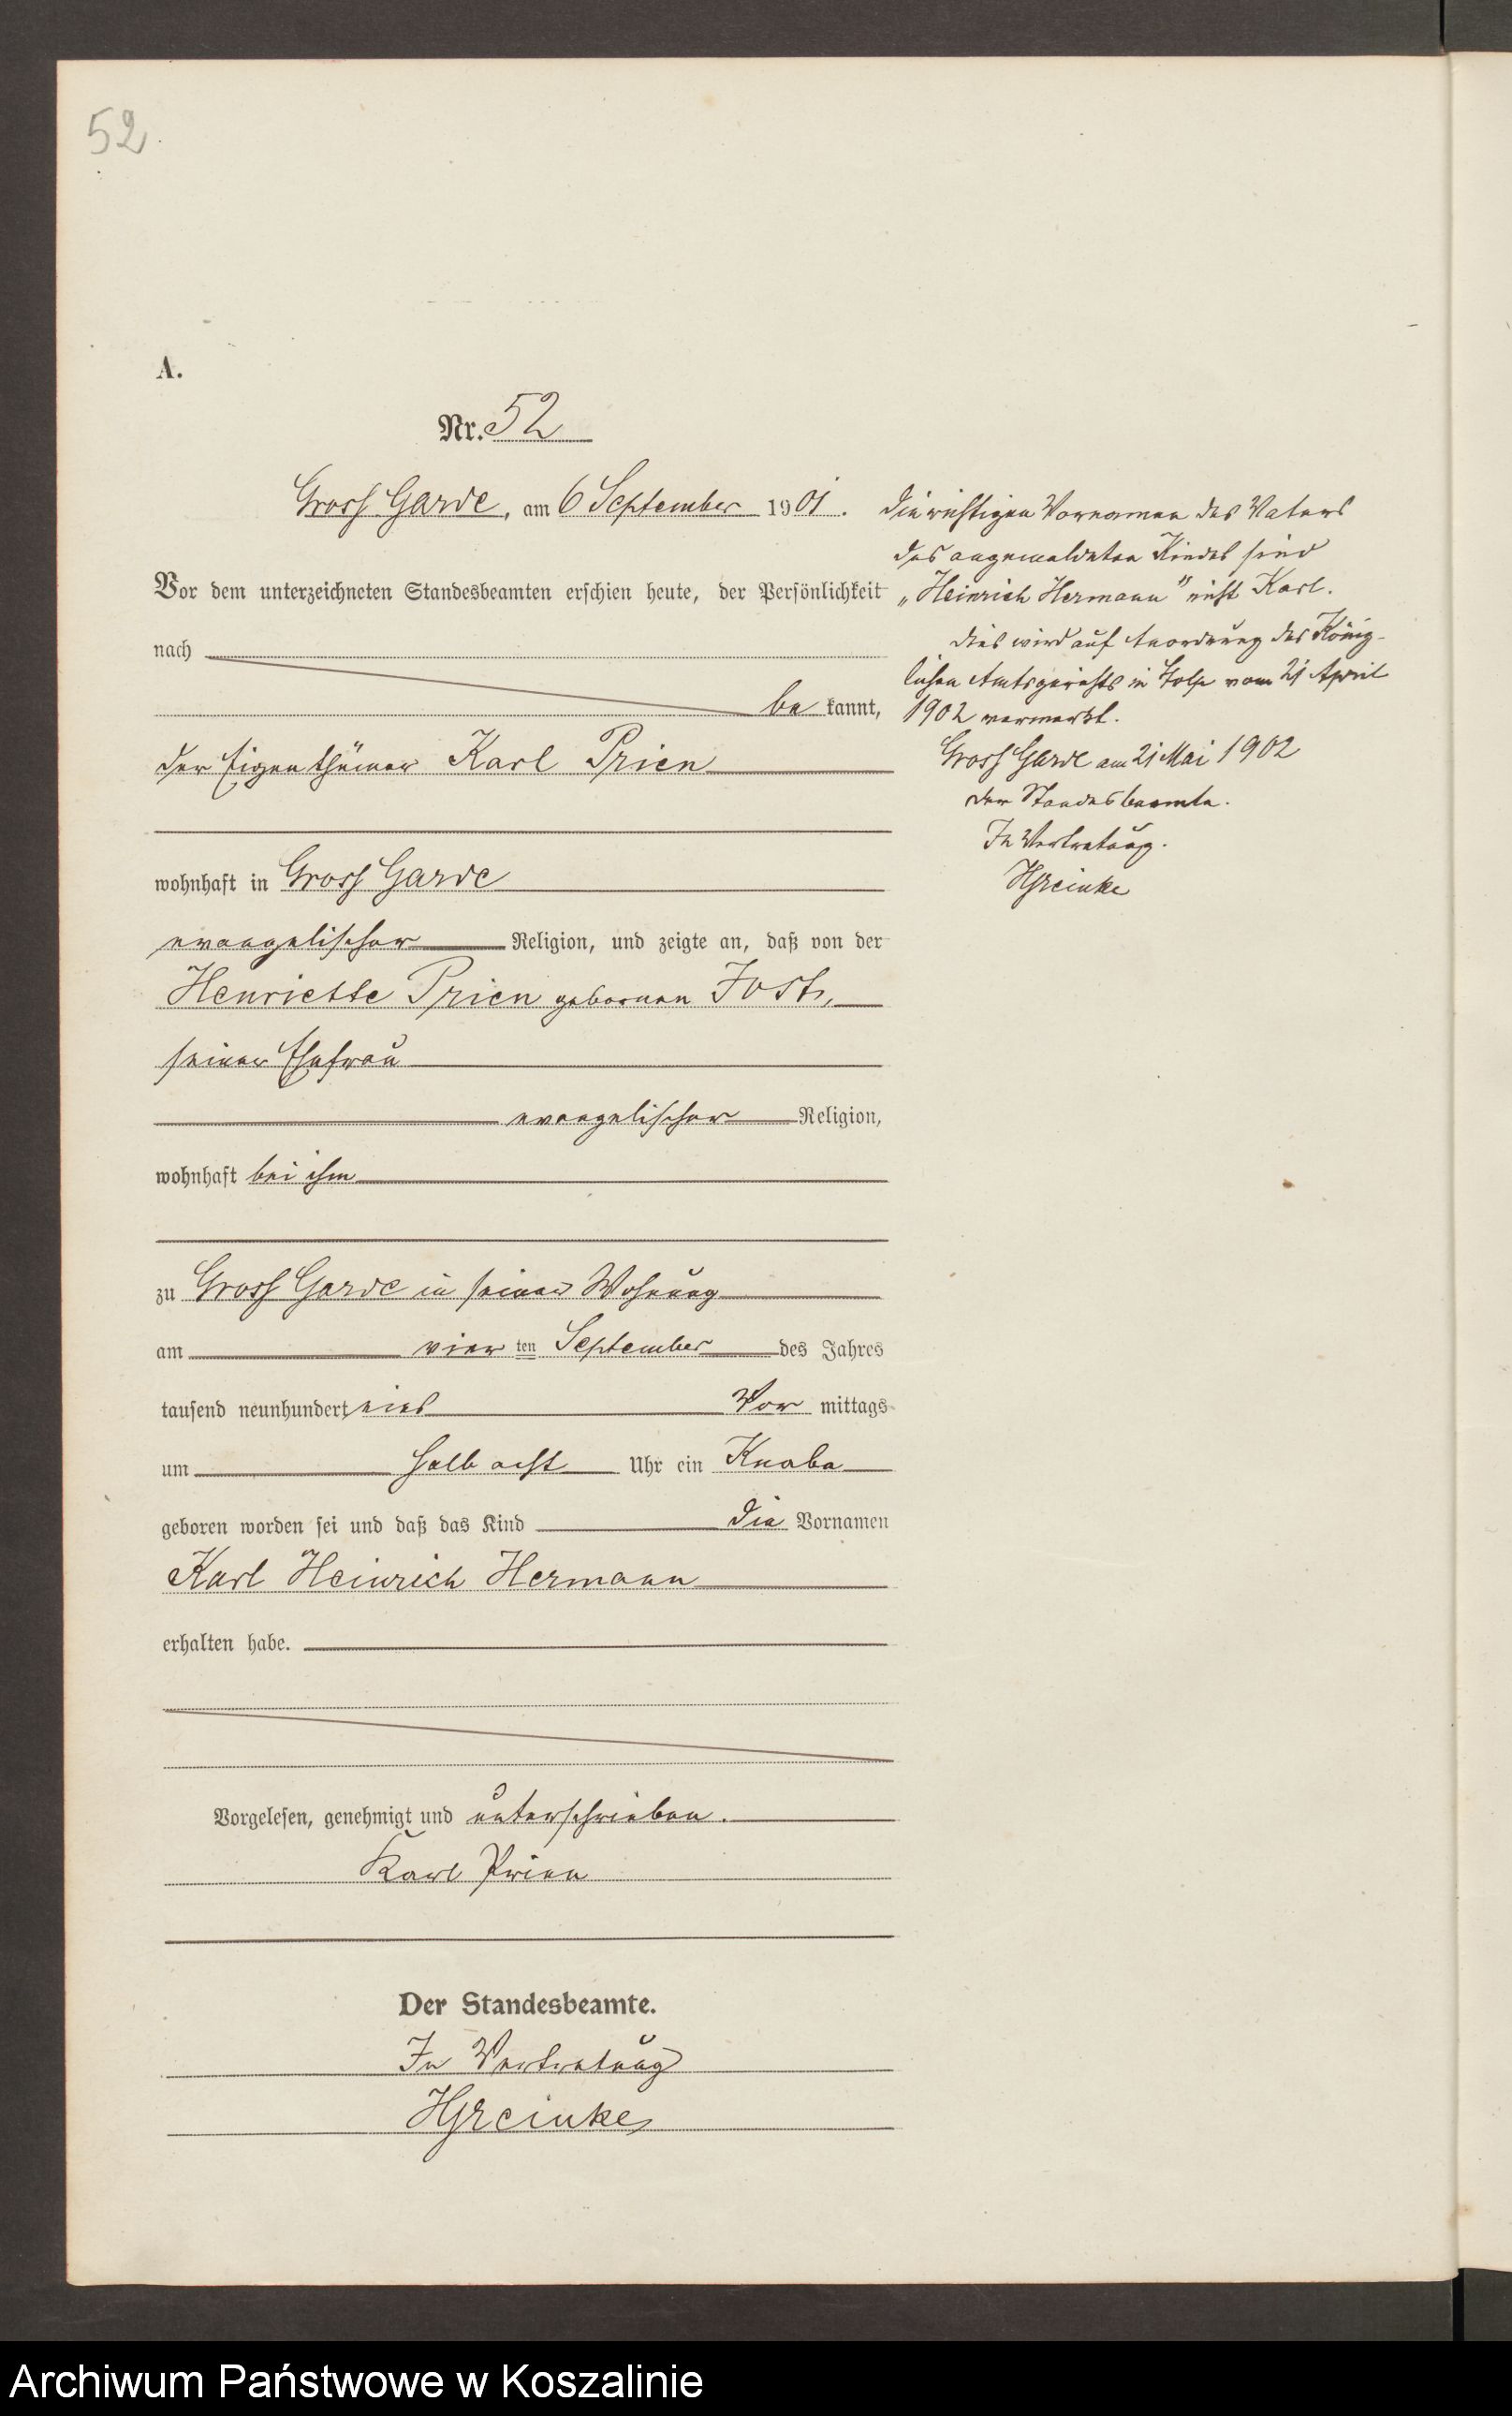 52.
A.
Nr. 52
Gross Garde, am 6 September 1901.
Vor dem unterzeichneten Standesbeamten erschien heute, der Persönlichkeit
nach
be kannt,
der Eigenthümer Karl Prien
wohnhaft in Gross Garde
evangelischer Religion, und zeigte an, daß von der
Henriette Prien geborenen Jost,
seiner Ehefrau
evangelischer Religion,
wohnhaft bei ihm
zu Gross Garde in seiner Wohnung
am vier ten September des Jahres
tausend neunhundert eins Vor mittags
um halb acht Uhr ein Knabe
geboren worden sei und daß das Kind die Vornamen
Karl Heinrich Hermann
erhalten habe.
Vorgelesen, genehmigt und unterschrieben.
Karl Prien
Der Standesbeamte.
In Vertretung
HReinke
Die richtigen Vornamen des Vaters
des angemeldeten Kindes sind
„Heinrich Hermann" nicht Karl.
Dies wird auf Anordnung des König-
lichen Amtsgerichts in Stolp vom 21 April
1902 vermerkt.
Gross Garde am 21 Mai 1902
Der Standesbeamte.
In Vertretung.
HReinke
Archiwum Państwowe w Koszalinie